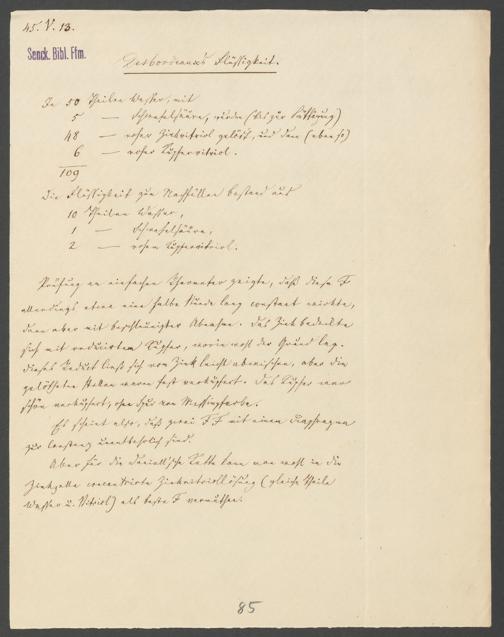 45. V. 13.
Senck. Bibl. Ffm.
Desbordeaux's Flüssigkeit.
In 50 Theilen Wasser, mit
5 — Schwefelsäure, werden (bis zur Sättigung)
48 — rohes Zinkvitriol gelöst, und dann (ebenso)
6 — rohes Kupfervitriol.
109
Die Flüssigkeit zum Nachfüllen bestand aus
10 Theilen Wasser,
1 — Schwefelsäure,
2 — rohem Kupfervitriol.
Prüfung am einfachen zeigte, daß diese F
allerdings etwa eine halbe Stunde lang constant wirkte,
dann aber mit beschleunigter Abnahme. Das Zink bedeckte
sich mit reducirtem Kupfer, worin wohl der Grund lag.
Dieses ließ sich vom Zink leicht abwischen, aber die
Stellen waren fest verkupfert. Das Kupfer war
schön verkupfert, ohne Spur von Messingfarbe.
Es scheint also, daß zwei FF mit einem Diaphragma
zur Constanz unentbehrlich sind.
Aber für die Daniell'sche Kette kann man wohl in die
Zinkzelle concentrirte Zinkvitriollösung (gleiche Theile
Wasser u. Vitriol) als beste F vermuthen.
85